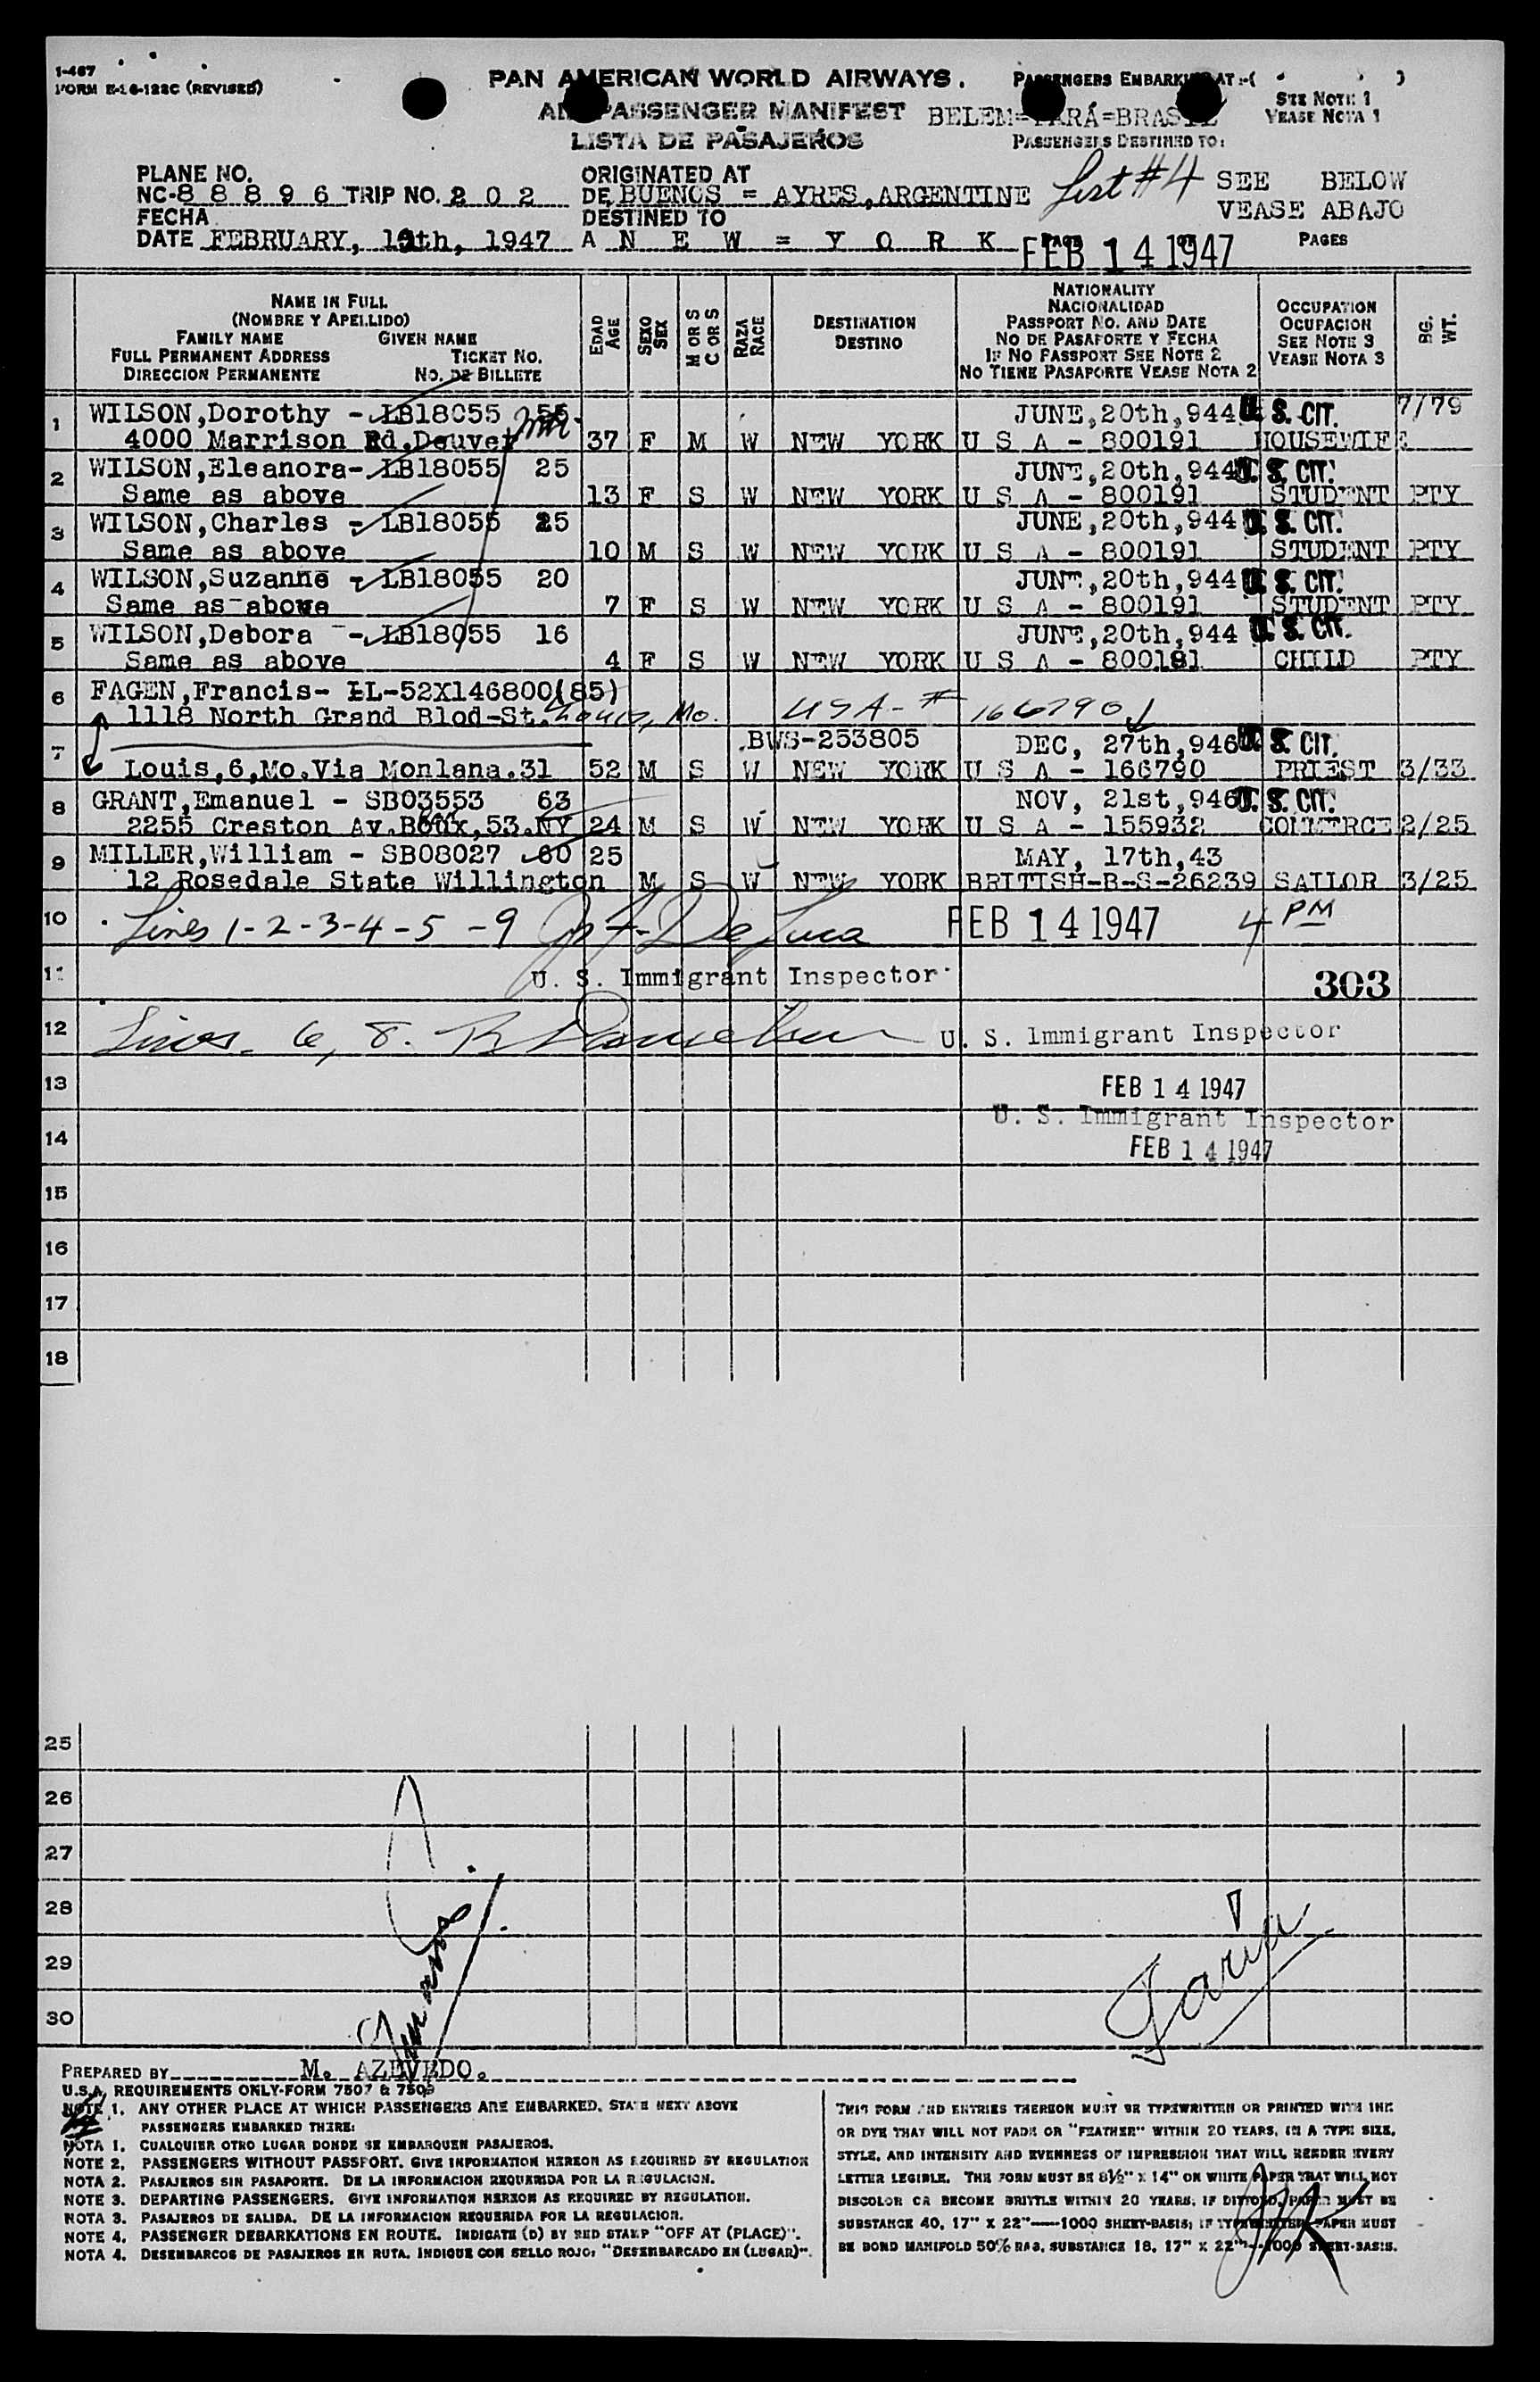 1-467
FORM E-16-122C (REVISED)
PAN AMERICAN WORLD AIRWAYS.
PASSENGER MANIFEST
LISTA DE PASAJEROS
PASSENGERS EMBARKING AT :-( )
SEE NOTE 1
VEASE NOTA 1
BELEM=PARÁ=BRASIL
PASSENGERS DESTINED TO:
List #4
SEE BELOW
VEASE ABAJO
PLANE NO.
NC-8 8 8 9 6 TRIP NO. 2 0 2
ORIGINATED AT
DE BUENOS = AYRES, ARGENTINE
FECHA
DATE FEBRUARY, th, 1947
DESTINED TO
A N E W = Y O R K
PAGE OF PAGES
FEB 14 1947
NAME IN FULL
(NOMBRE Y APELLIDO)
FAMILY NAME GIVEN NAME
FULL PERMANENT ADDRESS TICKET NO.
DIRECCION PERMANENTE NO. DE BILLETE
EDAD AGE
SEXO SEX
M OR S C OR S
RAZA RACE
DESTINATION
DESTINO
NATIONALITY
NACIONALIDAD
PASSPORT NO. AND DATE
NO DE PASAPORTE Y FECHA
IF NO PASSPORT SEE NOTE 2
NO TIENE PASAPORTE VEASE NOTA 2
OCCUPATION
OCUPACION
SEE NOTE 3
VEASE NOTA 3
BG. WT.
1 WILSON,Dorothy - LB18055 JUNE,20th,944 U. S. CIT. 7/79
4000 Marrison Rd,Deuver 37 F M W NEW YORK U S A - 800191 HOUSEWIFE
2 WILSON,Eleanora- LB18055 25 JUNE,20th,944 U. S. CIT.
Same as above 13 F S W NEW YORK U S A - 800191 STUDENT PTY
3 WILSON,Charles - LB18055 25 JUNE,20th,944 U. S. CIT.
Same as above 10 M S W NEW YORK U S A - 800191 STUDENT PTY
4 WILSON,Suzanne - LB18055 20 JUNE,20th,944 U. S. CIT.
Same as above 7 F S W NEW YORK U S A - 800191 STUDENT PTY
5 WILSON,Debora - LB18055 16 JUNE,20th,944 U. S. CIT.
Same as above 4 F S W NEW YORK U S A - 800191 CHILD PTY
6 FAGEN,Francis- LL-52X146800(85)
1118 North Grand Blod-St. Louis, Mo. USA-# 166790
7 BWS-253805 DEC, 27th,946 U. S. CIT.
Louis,6,Mo.Via Monlana.31 52 M S W NEW YORK U S A - 166790 PRIEST 3/33
8 GRANT,Emanuel - SB03553 63 NOV, 21st,946 U. S. CIT.
2255 Creston Av.Boux,53.NY 24 M S W NEW YORK U S A - 155932 COMMERCE 2/25
9 MILLER,William - SB08027 60 25 MAY, 17th,43
12 Rosedale State Willington M S W NEW YORK BRITISH-B-S-26239 SAILOR 3/25
10 Lines 1-2-3-4-5-9 De Luca FEB 14 1947 4 PM
11 U. S. Immigrant Inspector 303
12 Lines 6, 8. U. S. Immigrant Inspector
13 FEB 14 1947
U. S. Immigrant Inspector
14 FEB 14 1947
15
16
17
18
25
26
27
28
29
30
PREPARED BY M. AZEVEDO.
U.S.A. REQUIREMENTS ONLY-FORM 7507 & 7509
NOTE 1. ANY OTHER PLACE AT WHICH PASSENGERS ARE EMBARKED. STATE NEXT ABOVE
PASSENGERS EMBARKED THERE:
NOTA 1. CUALQUIER OTRO LUGAR DONDE SE EMBARQUEN PASAJEROS.
NOTE 2. PASSENGERS WITHOUT PASSPORT. GIVE INFORMATION HEREON AS REQUIRED BY REGULATION
NOTA 2. PASAJEROS SIN PASAPORTE. DE LA INFORMACION REQUERIDA POR LA REGULACION.
NOTE 3. DEPARTING PASSENGERS. GIVE INFORMATION HEREON AS REQUIRED BY REGULATION.
NOTA 3. PASAJEROS DE SALIDA. DE LA INFORMACION REQUERIDA POR LA REGULACION.
NOTE 4. PASSENGER DEBARKATIONS EN ROUTE. INDICATE (D) BY RED STAMP "OFF AT (PLACE)".
NOTA 4. DESEMBARCOS DE PASAJEROS EN RUTA. INDIQUE CON SELLO ROJO: "DESEMBARCADO EN (LUGAR)".
THIS FORM AND ENTRIES THEREON MUST BE TYPEWRITTEN OR PRINTED WITH INK
OR DYE THAT WILL NOT FADE OR "FEATHER" WITHIN 20 YEARS, IN A TYPE SIZE,
STYLE, AND INTENSITY AND EVENNESS OF IMPRESSION THAT WILL RENDER EVERY
LETTER LEGIBLE. THE FORM MUST BE 8½" X 14" ON WHITE PAPER THAT WILL NOT
DISCOLOR OR BECOME BRITTLE WITHIN 20 YEARS; IF DITTOED, PAPER MUST BE
SUBSTANCE 40, 17" X 22"-----1000 SHEET-BASIS; IF TYPEWRITTEN PAPER MUST
BE BOND MANIFOLD 50% RAG, SUBSTANCE 18, 17" X 22"--1000 SHEET-BASIS.